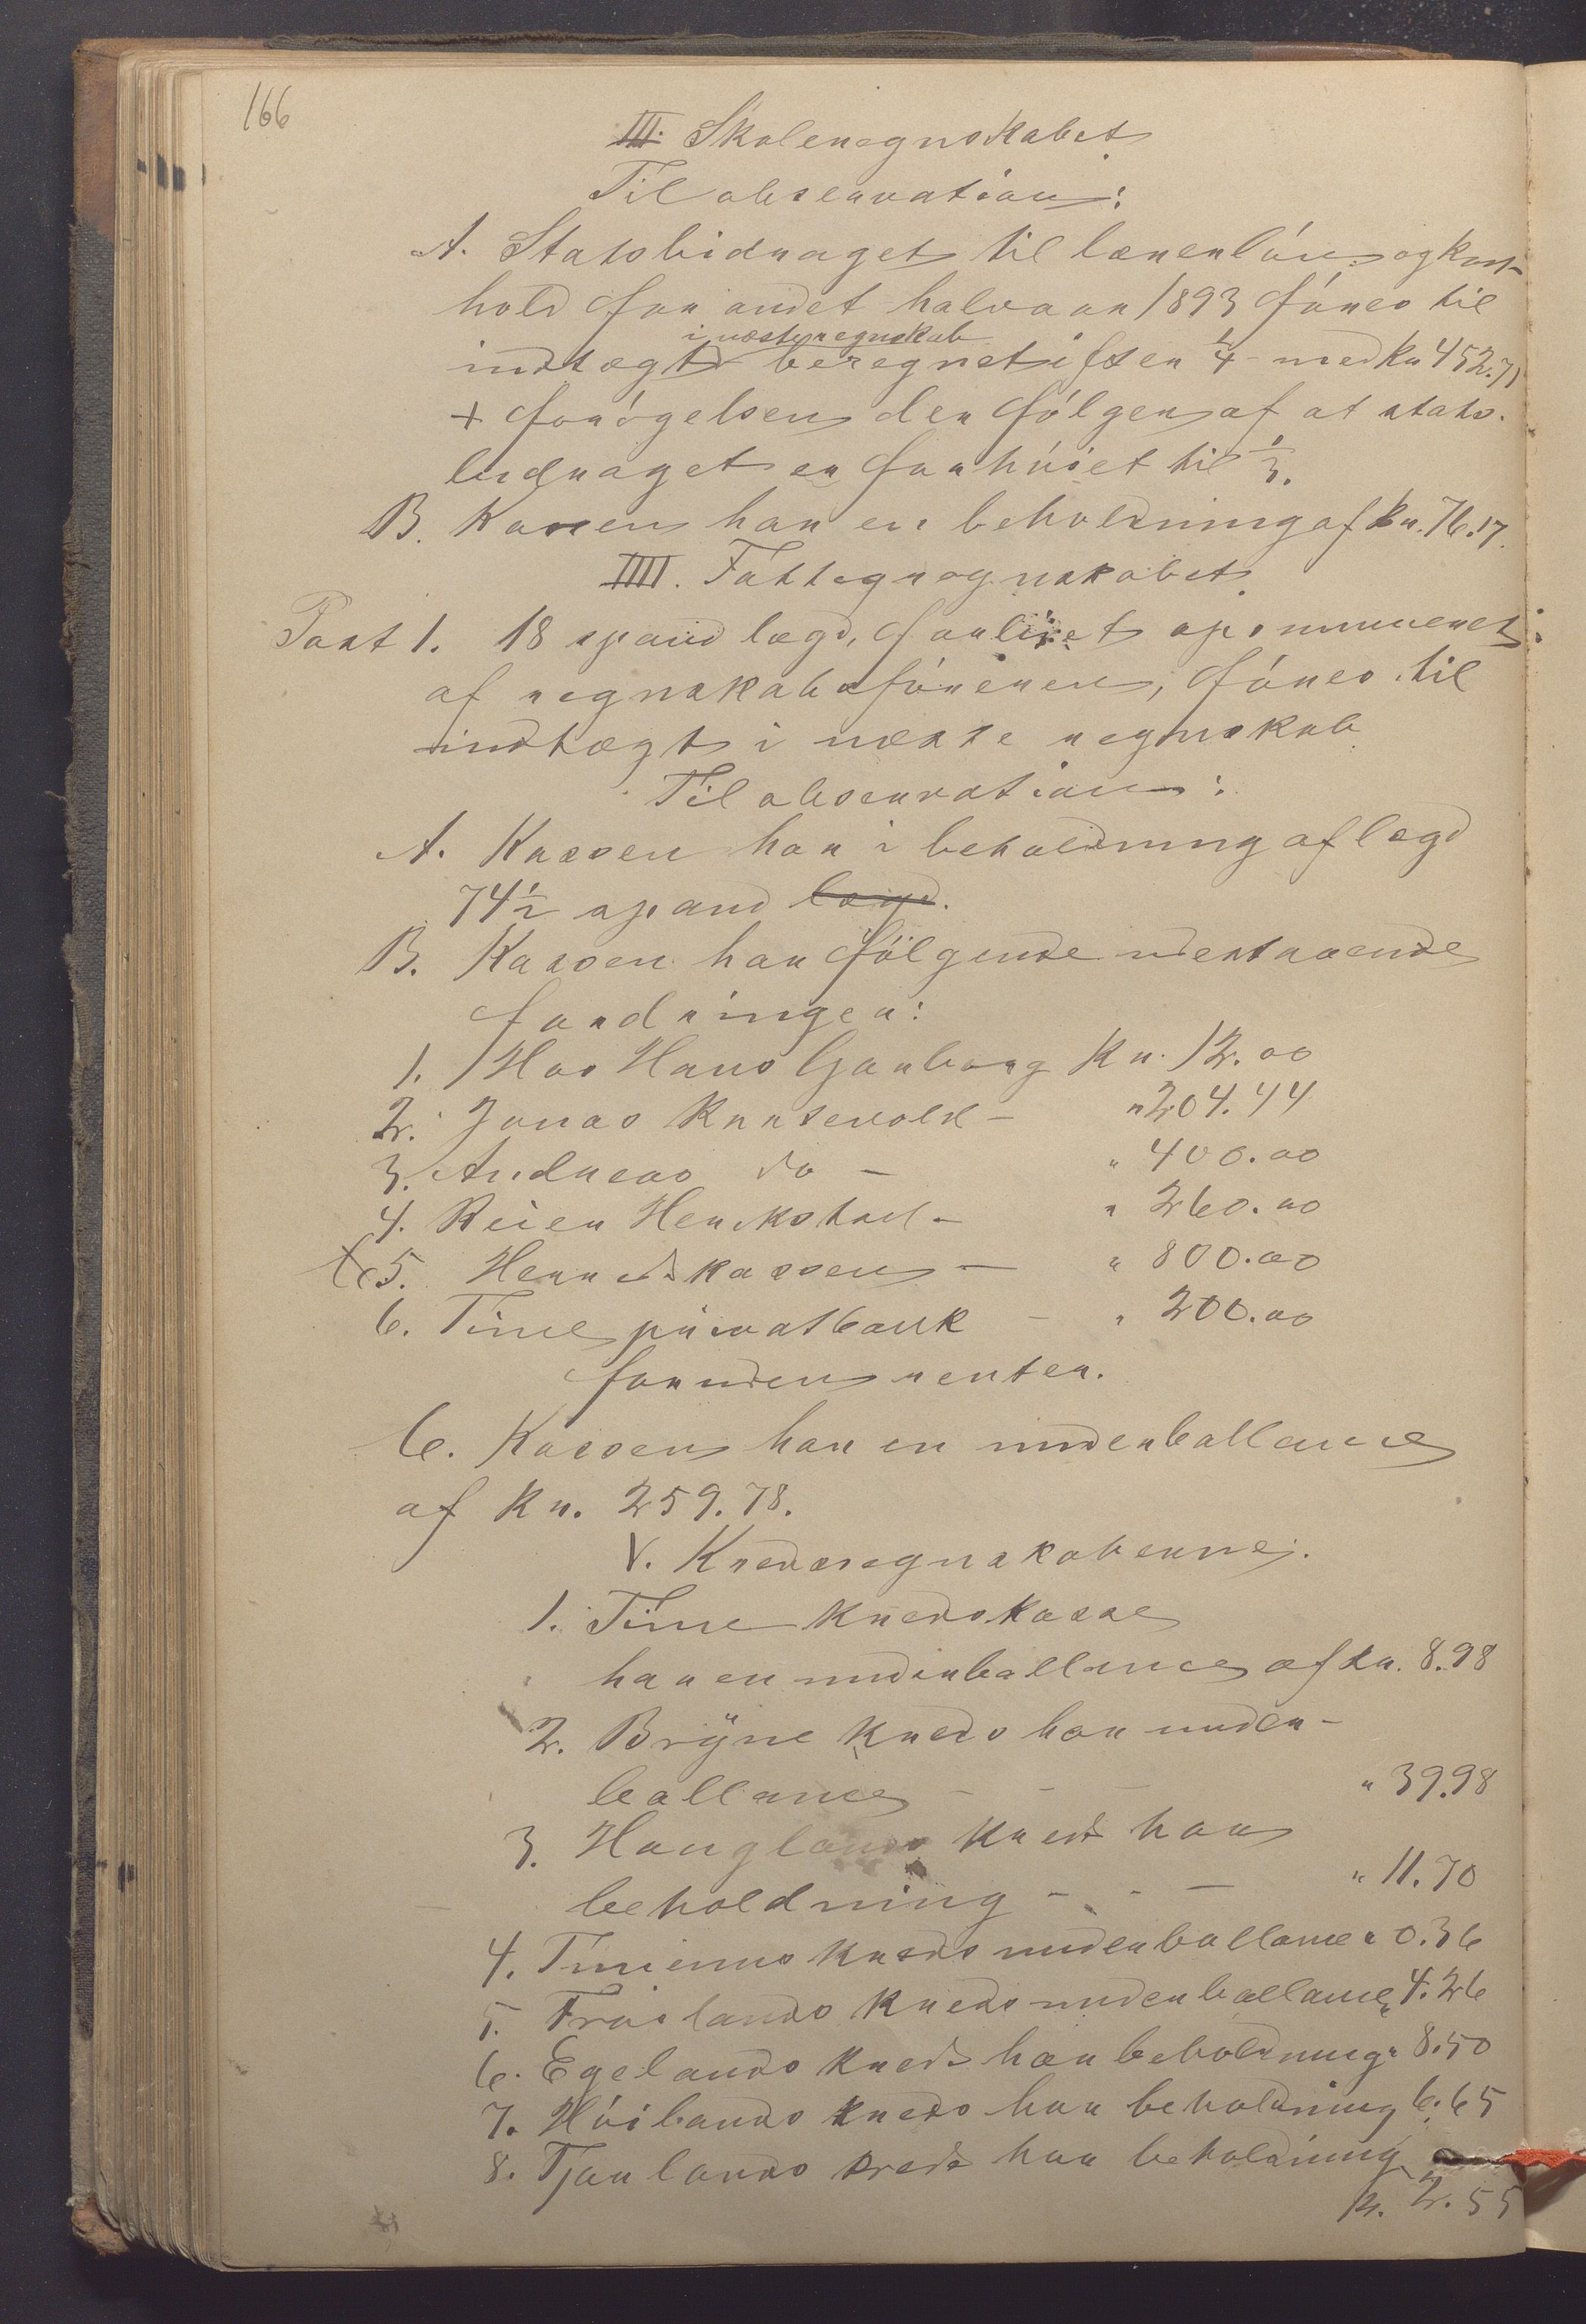 166
III. Skoleregnskabet
Til observation:
A. Statsbidraget til lærerløn og kost-
hold for andet halvaar 1893 føres til
i næste regnskab
indtægt beregnet ifter 1/4 med kr 452.71
+ forøgelsen der følger af at stats-
bidraget er forhøiet til 1/3.
B. Kassen har en beholdning af kr. 76.17.
IIII. Fattigregnskabet.
Post 1. 18 spand lægd, forliret opsummeret
af regnskabsføreren, føres til
indtægt i næste regnskab
Til observation:
A. Kassen har i beholdning af lægd
74 1/2 spand lægd.
B. Kassen har følgende udestaaende
fordringer:
1. Hos Hans Garborg Kr. 12.00
2. Jonas Knutsvold - " 204.44
3. Andreas do - " 400.00
4. Reier Herikstad - " 260.00
5. Herredskassen - " 800.00
6. Time privatbank - " 200.00
foruden renter.
C. Kassen har en underballance
af kr. 259.78.
V. Kredsregnskaberne.
1. Time kredskasse
har en underballance af kr. 8.98
2. Bryne kreds har under-
ballance - - - " 39.98
3. Hauglands kreds har
beholdning - - - " 11.70
4. Tunierns kreds underballance " 0.36
5. Frøilands kreds underballance " 4.26
6. Egelands kreds har beholdning " 8.50
7. Høilands kreds har beholdning 6.65
8. Tjaulands kreds har beholdning
kr. 2.55